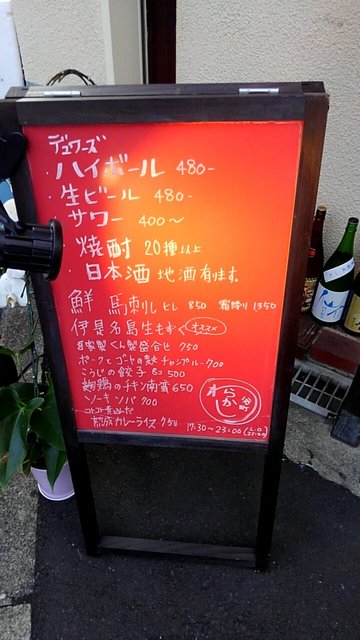 デュワーズ
ハイボール 480-
生ビール 480-
サワー 400〜
焼酎 20種以上
日本酒 地酒有ります。
鮮 馬刺し ヒレ 850 霜降り 1350
伊是名島生もずく オススメ
自家製くん製盛合せ 750
ポークとゴーヤの麸チャンプルー 700
こうじの餃子 5コ 500
麹鶏のチキン南蛮 650
ソーキソバ 700
コトコト煮込んだ
カレーライス 750
わらしか 谷町
17:30〜23:00